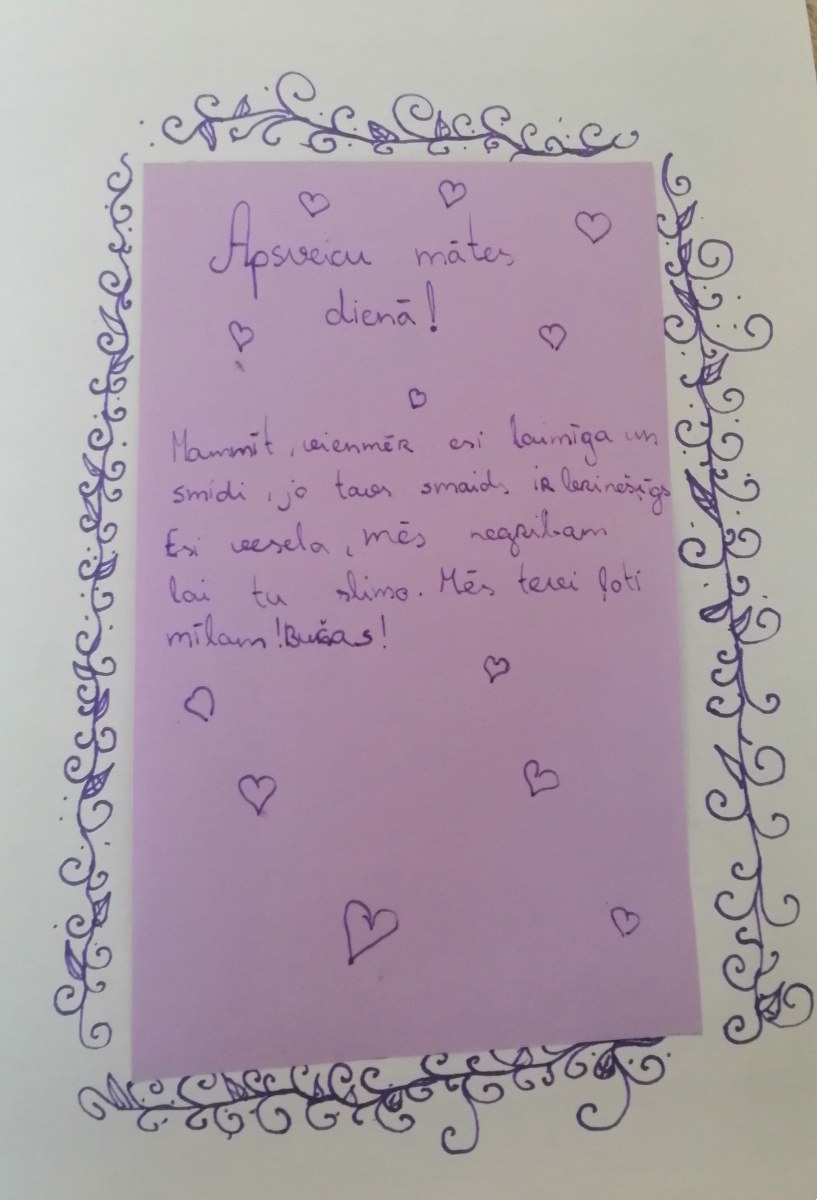 Apsveicu mātes
dienā!
Mammīt, vienmēr esi laimīga un
smidi, jo tavs smaids ir lerinešīgs
Esi vesela, mēs negribam
lai tu slimo. Mēs tevi ļoti
mīlam! Bučas!